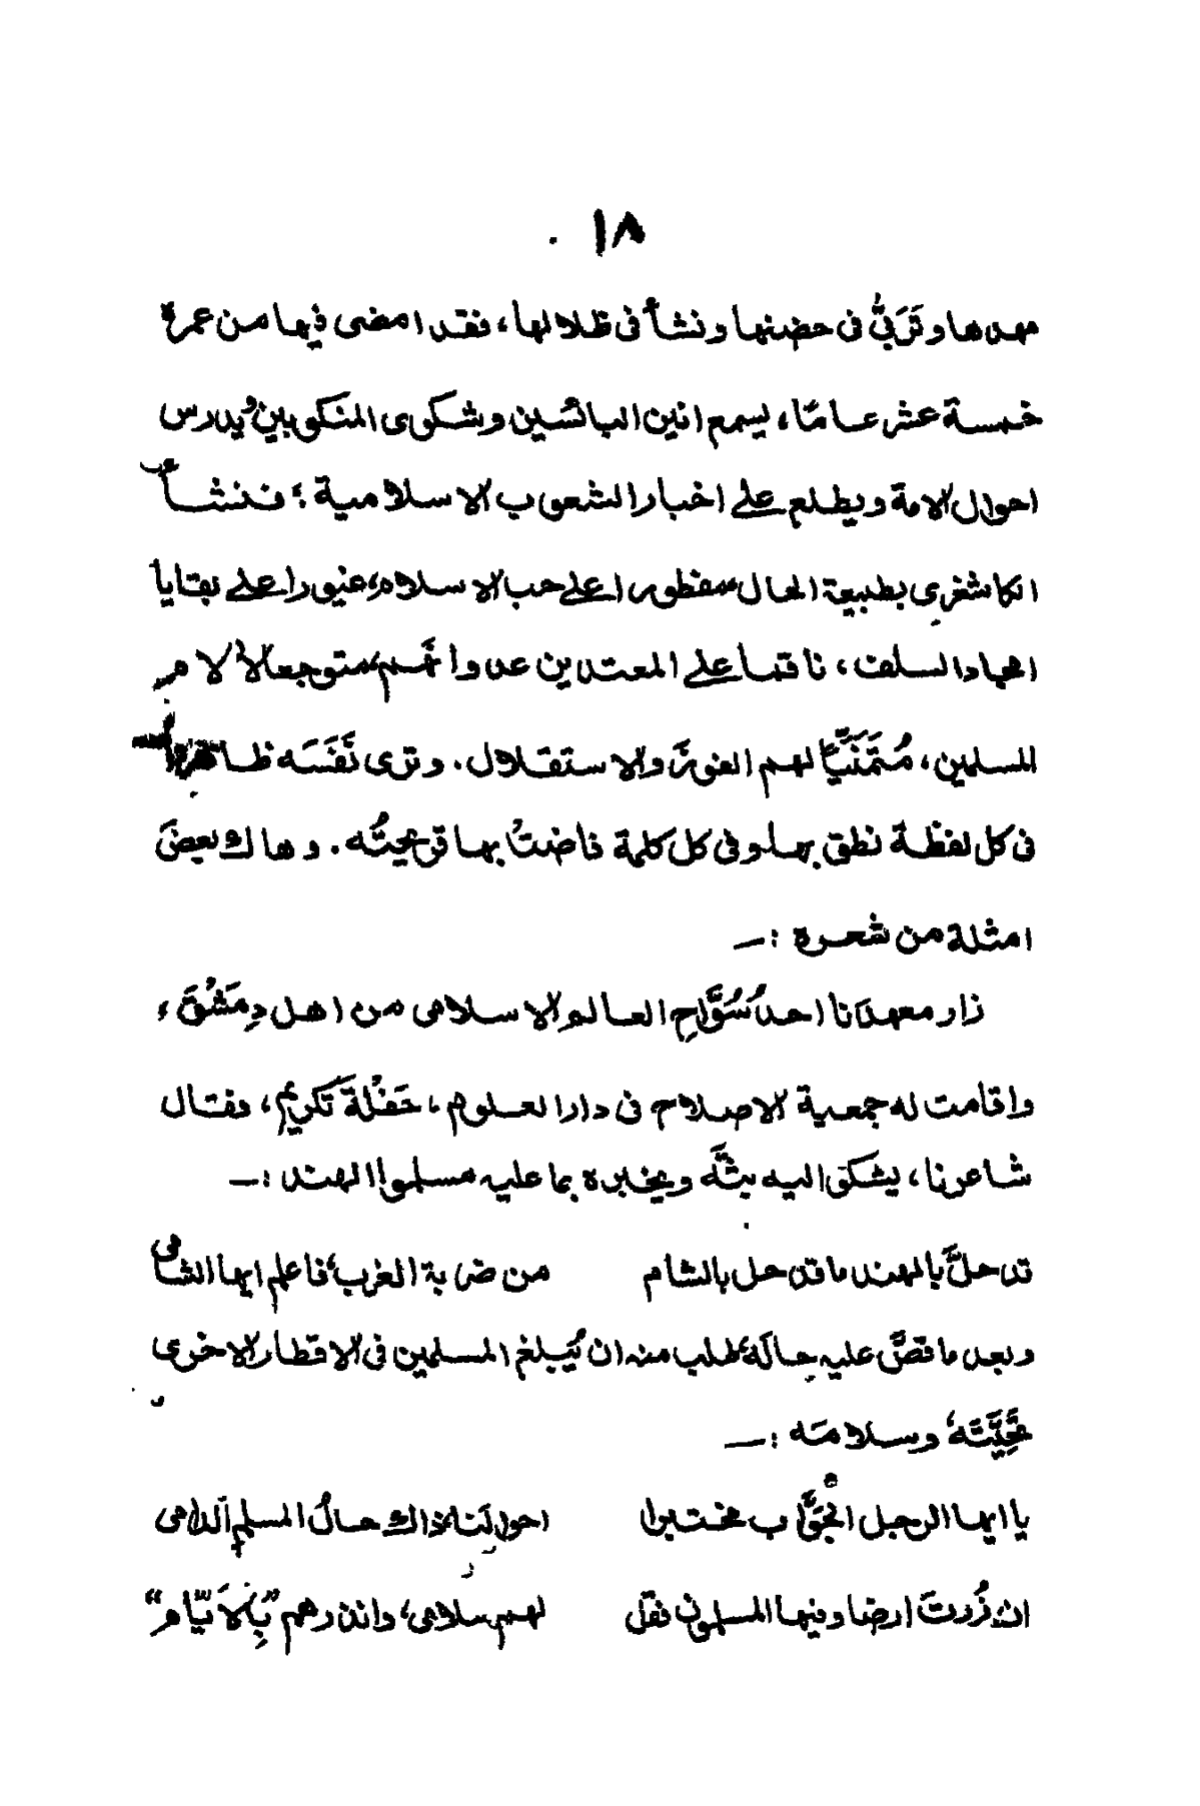 ١٨
مهدها وتَرَبَّى فى حضنها ونشأ فى ظلالها، فقد امضى فيها من عمره
خمسة عشر عامًا، ليسمع انين البائسين وشكوى المنكوبين ويدرس
احوال الامة ويطلع على اخبار الشعوب الاسلامية؛ فنشأ
الكاشغرى بطبيعة الحال مفطورا على حب الاسلام، غيورا على بقايا
امجاد السلف، ناقما على المعتدين عدوانَهم، متوجعا لآلام
المسلمين، مُتَمَنِّيًا لهم الفوزَ والاستقلال. وترى نَفَسَه ظاهرا
فى كل لفظة نطق بها وفى كل كلمة فاضتْ بها قريحيتُه. وهاك بعضَ
امثلة من شعره :—
زار معهدَنا احدُ سُوَّاحِ العالم الاسلامى من اهل دِمَشْقَ،
واقامت له جمعية الاصلاح فى دار العلوم، حَفْلةَ تَكريم، فقال
شاعرنا، يشكو اليه بثَّه ويخبره بما عليه مسلموا الهند :—
قد حلَّ بالهند ما قد حل بالشام من ضربة الغرب، فاعلم ايها الشامى
وبعد ما قصَّ عليه حالَه، طلب منه ان يُبلغ المسلمين فى الاقطار الاخرى
تَحِيَّتَه، وسلامَه :—
يا ايها الرجل الجَوَّاب مختبرا احوالَنا، ذاك حالُ المسلم الدامى
ان زُرتَ ارضا وفيها المسلمون فقل لهم سلامى، وانذرهم "بِاَلاَيّام"